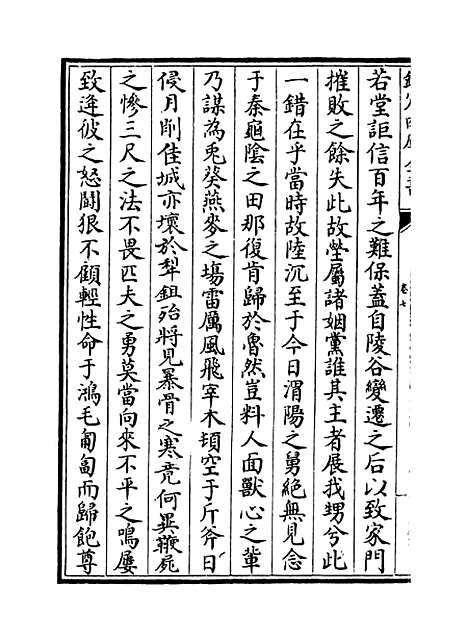 欽定四庫全書
卷七
若堂詎信百年之難保蓋自陵谷變遷之后以致家門
摧敗之餘失此故塋屬諸姻黨誰其主者展我甥兮此
一錯在乎當時故陸沉至于今日渭陽之舅絕無見念
于秦龜陰之田那復肯歸於魯然豈料人面獸心之輩
乃謀為兎葵燕麥之場雷厲風飛宰木頓空于斤斧日
侵月削佳城亦壞於犁鉏殆將見暴骨之寒竟何異鞭屍
之慘三尺之法不畏匹夫之勇莫當向來不平之鳴屢
致逄彼之怒鬪狠不顧輕性命于鴻毛匍匐而歸飽尊